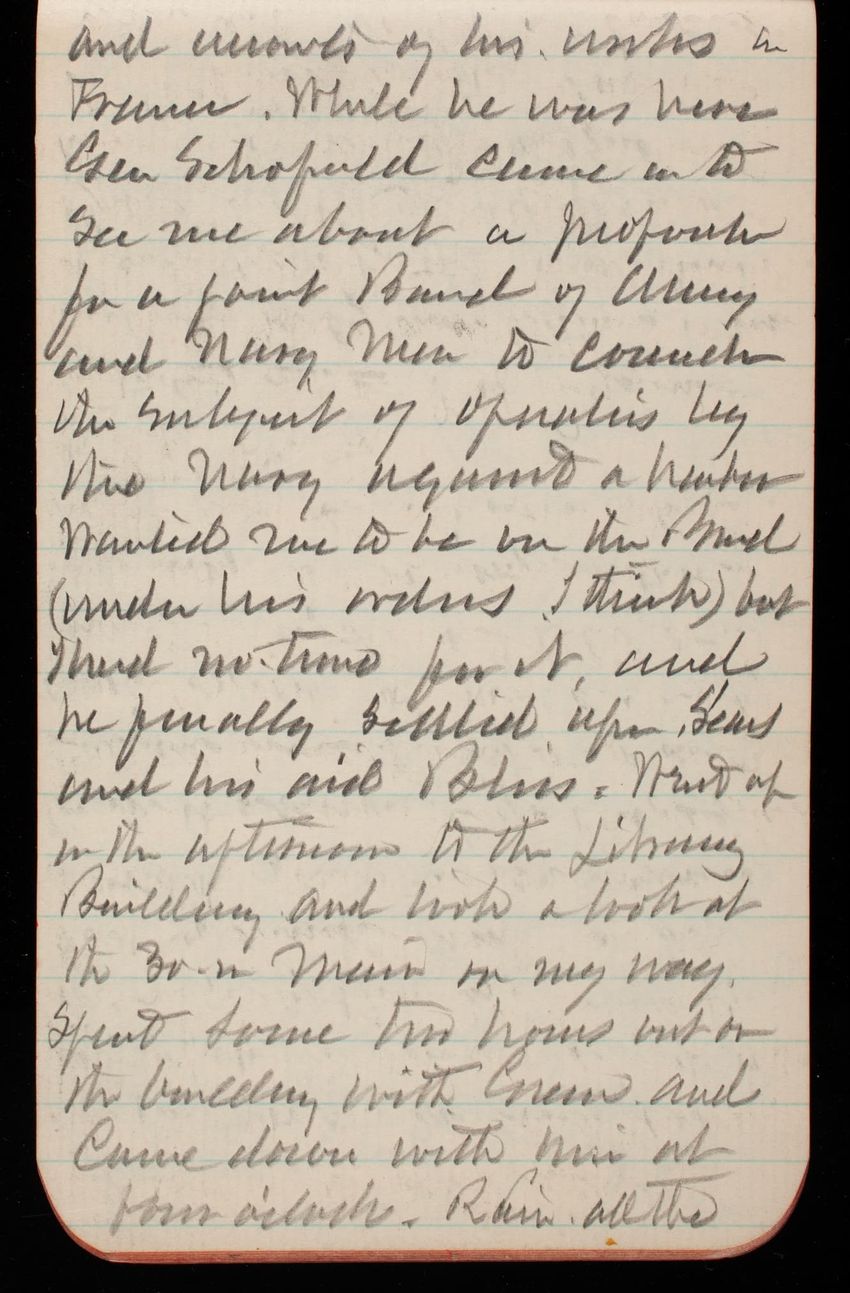 and  of his  in
France. While he was here
Gen Schofield came in to
see me about a 
for a joint Board of Army
and Navy Men to consider
the subject of operations by
the Navy against a harbor
Wanted me to be on the Board
(under his orders I think) but
I had no time for it, and
he finally settled upon Sears
and his aid Bliss. Went up
in the afternoon to the Library
Building and took a look at
the 30-in Main on my way.
Spent some two hours out on
the building with Green and
Came down with him at
four o'clock. Rain all the